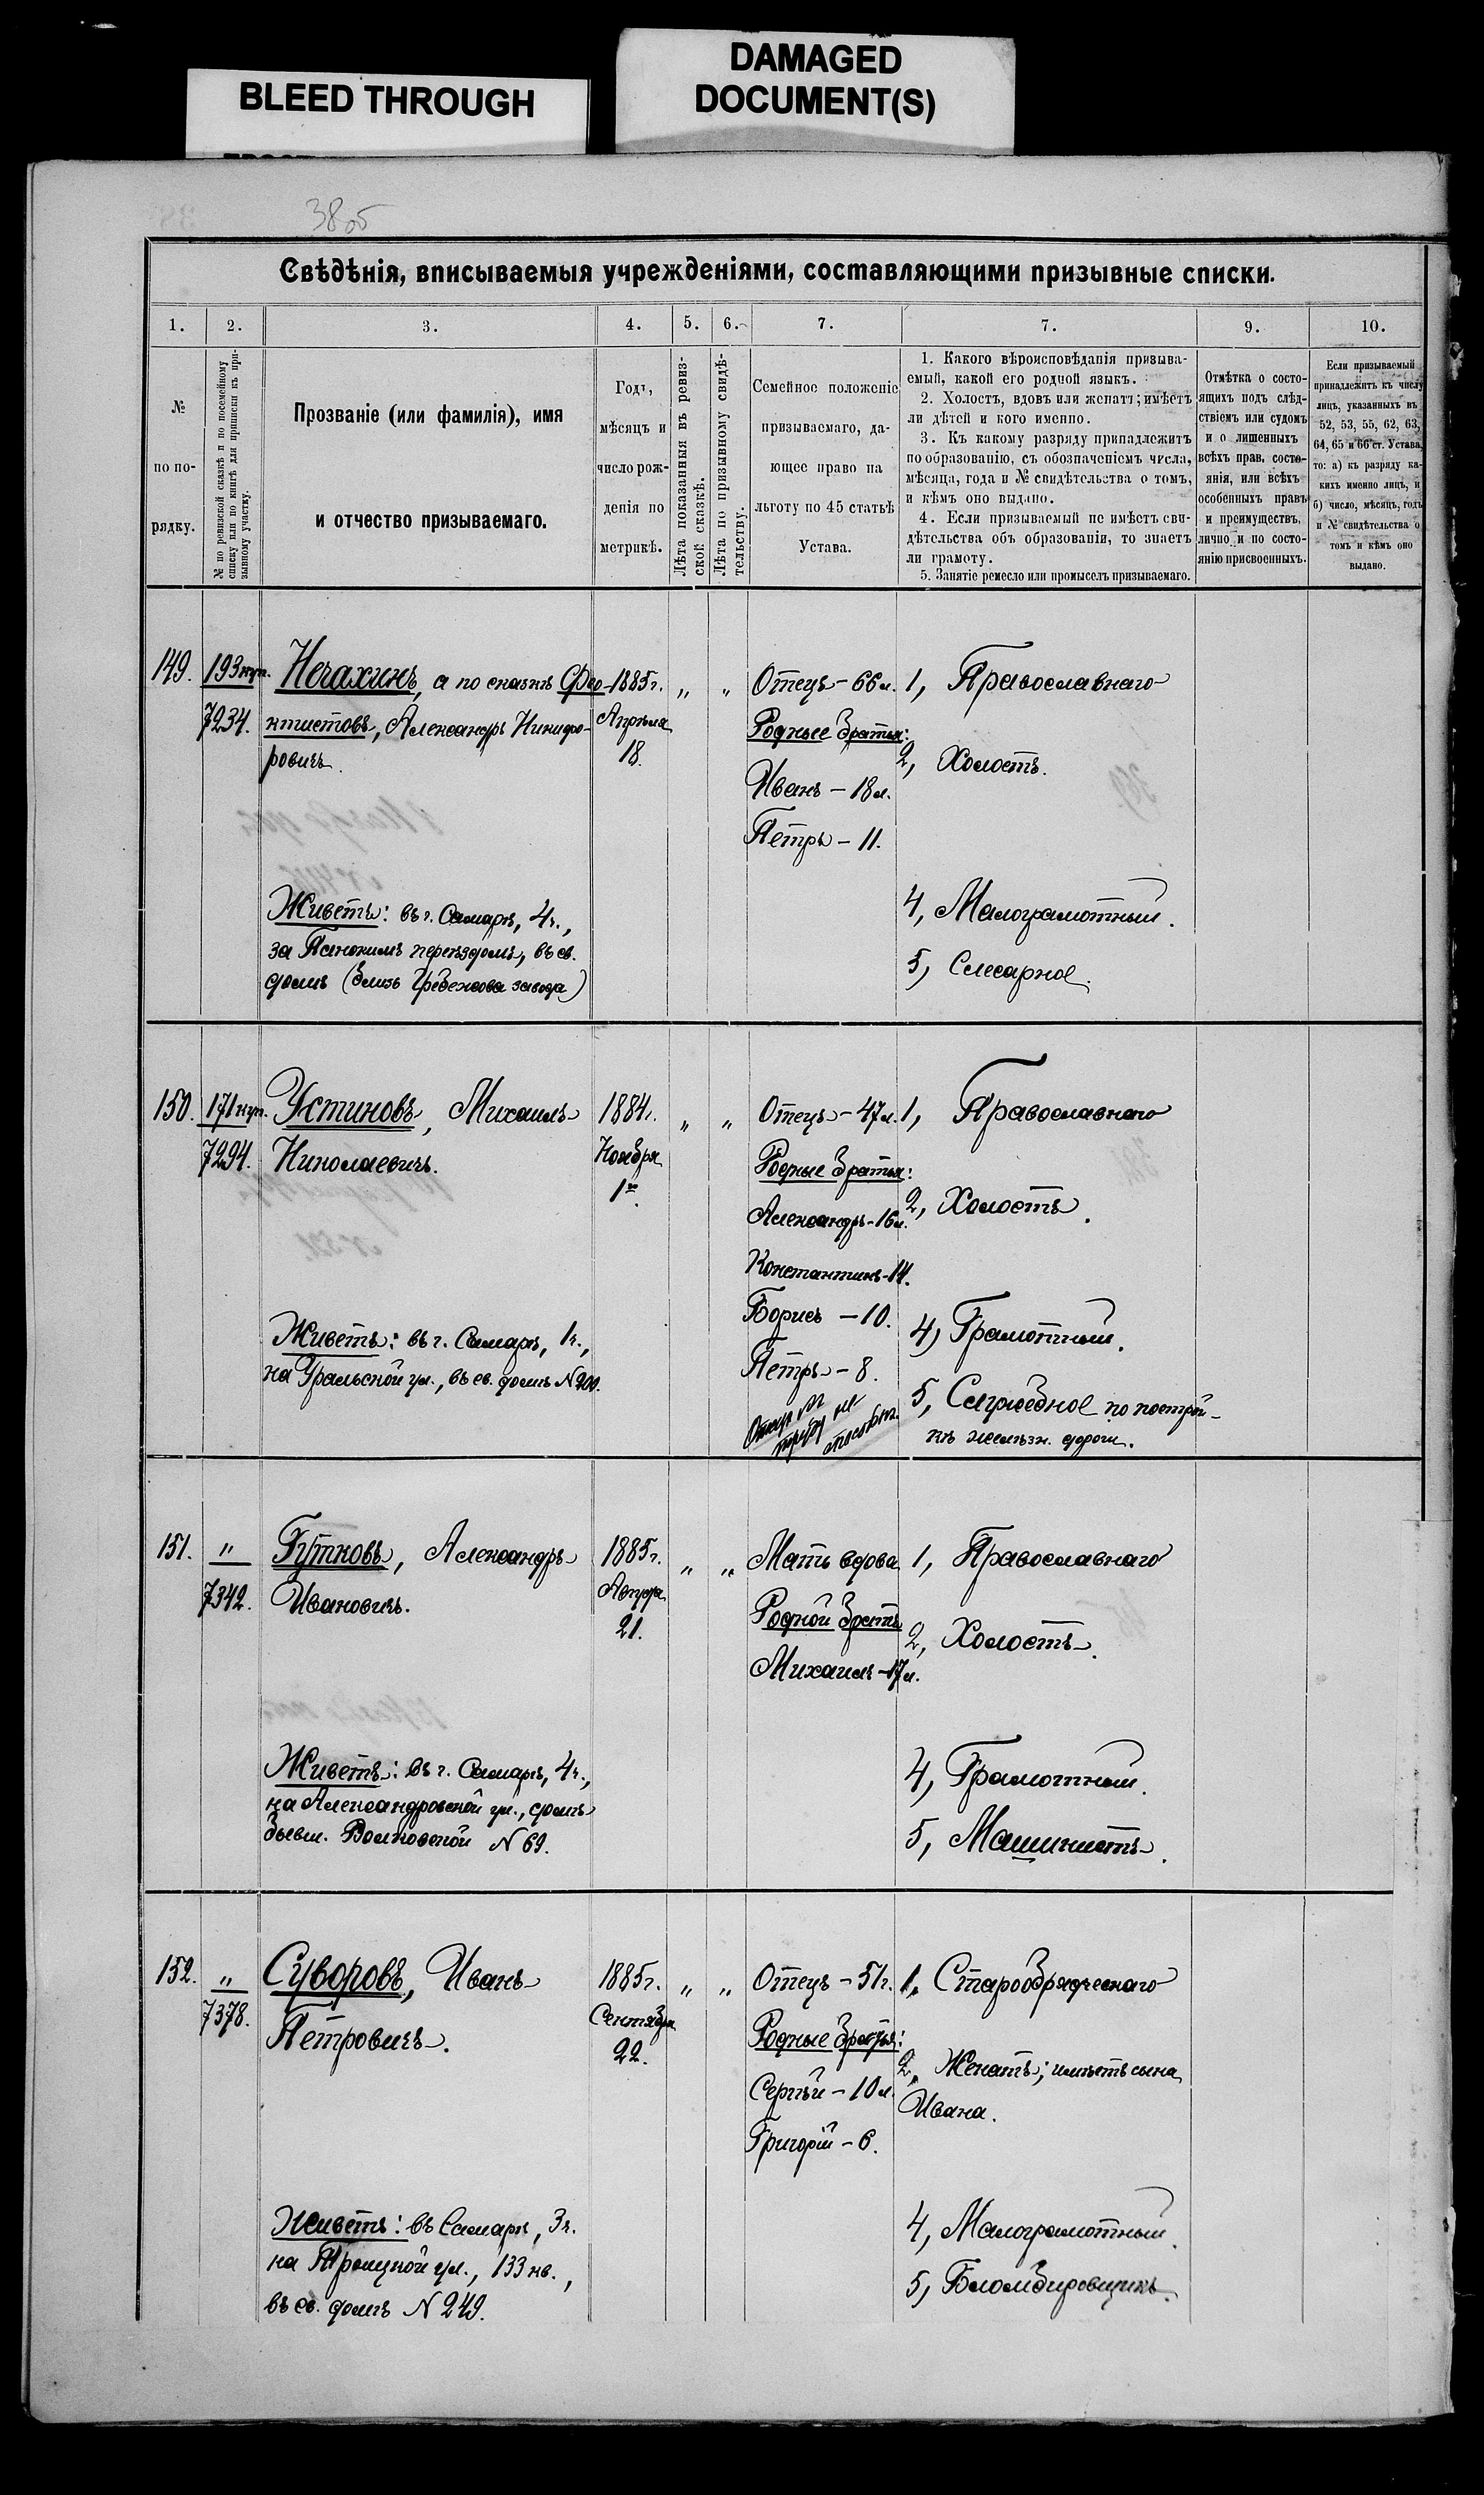 BLEED THROUGH
DAMAGED
DOCUMENT(S)
38об
Свѣдѣнія, вписываемыя учрежденіями, составляющими призывные списки.
1. 2. 3. 4. 5. 6. 7. 7. 9. 10.
№
по по-
рядку.
№ по ревизской сказкѣ и по посемейному
списку или по книгѣ для приписки къ при-
зывному участку.
Прозваніе (или фамилія), имя
и отчество призываемаго.
Годъ,
мѣсяцъ и
число рож-
денія по
метрикѣ.
Лѣта показанныя въ ревиз-
ской сказкѣ.
Лѣта по призывному свидѣ-
тельству.
Семейное положеніе
призываемаго, да-
ющее право на
льготу по 45 статьѣ
Устава.
1. Какого вѣроисповѣданія призыва-
емый, какой его родной языкъ.
2. Холостъ, вдовъ или женатъ; имѣетъ
ли дѣтей и кого именно.
3. Къ какому разряду принадлежитъ
по образованію, съ обозначеніемъ числа,
мѣсяца, года и № свидѣтельства о томъ,
и кѣмъ оно выдано.
4. Если призываемый не имѣетъ сви-
дѣтельства объ образованіи, то знаетъ
ли грамоту.
5. Занятіе ремесло или промыселъ призываемаго.
Отмѣтка о состо-
ящихъ подъ слѣд-
ствіемъ или судомъ
и о лишенныхъ
всѣхъ прав. состо-
янія, или всѣхъ
особенныхъ правъ
и преимуществъ,
лично и по состо-
янію присвоенныхъ.
Если призываемый
принадлежитъ къ числу
лицъ, указанныхъ въ
52, 53, 55, 62, 63,
64, 65 и 66 ст. Устава,
то: а) къ разряду ка-
кихъ именно лицъ, и
б) число, мѣсяцъ, годъ
и № свидѣтельства о
томъ и кѣмъ оно
выдано.
149.
193 куп.
7234.
Нечахинъ, а по сказкѣ Фео-
нтистовъ, Александръ Никифо-
ровичъ.
Живетъ: въ г. Самарѣ, 4 ч.,
за переѣздомъ, въ св.
домѣ (близь завода)
1885 г.
Апрѣля
18.
„ „
Отецъ – 66 л.
Родные братья:
Иванъ – 18 л.
Петръ – 11.
1, Православнаго
2, Холостъ.
4, Малограмотный.
5, Слесарное.
150.
171 куп.
7294.
Устиновъ, Михаилъ
Николаевичъ.
Живетъ: въ г. Самарѣ, 1 ч.,
на Уральской ул., въ св. домѣ N 200.
1884 г.
Ноября
1го.
„ „
Отецъ – 47 л.
Родные братья:
Александръ – 16 л.
Константинъ – 14.
Борисъ – 10.
Петръ – 8.
Отецъ къ
труду не
способенъ.
1, Православнаго
2, Холостъ.
4, Грамотный.
5, Служебное по построй-
кѣ желѣзн. дороги.
151.
„
7342.
Гутковъ, Александръ
Ивановичъ.
Живетъ: въ г. Самарѣ, 4 ч.,
на Александровской ул., домъ
бывш. Волковской N 69.
1885 г.
Августа
21.
„ „
Мать вдова
Родной братъ
Михаилъ – 17 л.
1, Православнаго
2, Холостъ.
4, Грамотный.
5, Машинистъ.
152.
„
7378.
Суворовъ, Иванъ
Петровичъ.
Живетъ: въ Самарѣ, 3 ч.
на Троицкой ул., 133 кв.,
въ св. домѣ N 249.
1885 г.
Сентября
22.
„ „
Отецъ – 51 г.
Родные братья:
Сергѣй – 10 л.
Григорій – 6.
1, Старообрядческаго
2, Женатъ; имѣетъ сына
Ивана.
4, Малограмотный.
5, Бломбировщикъ.